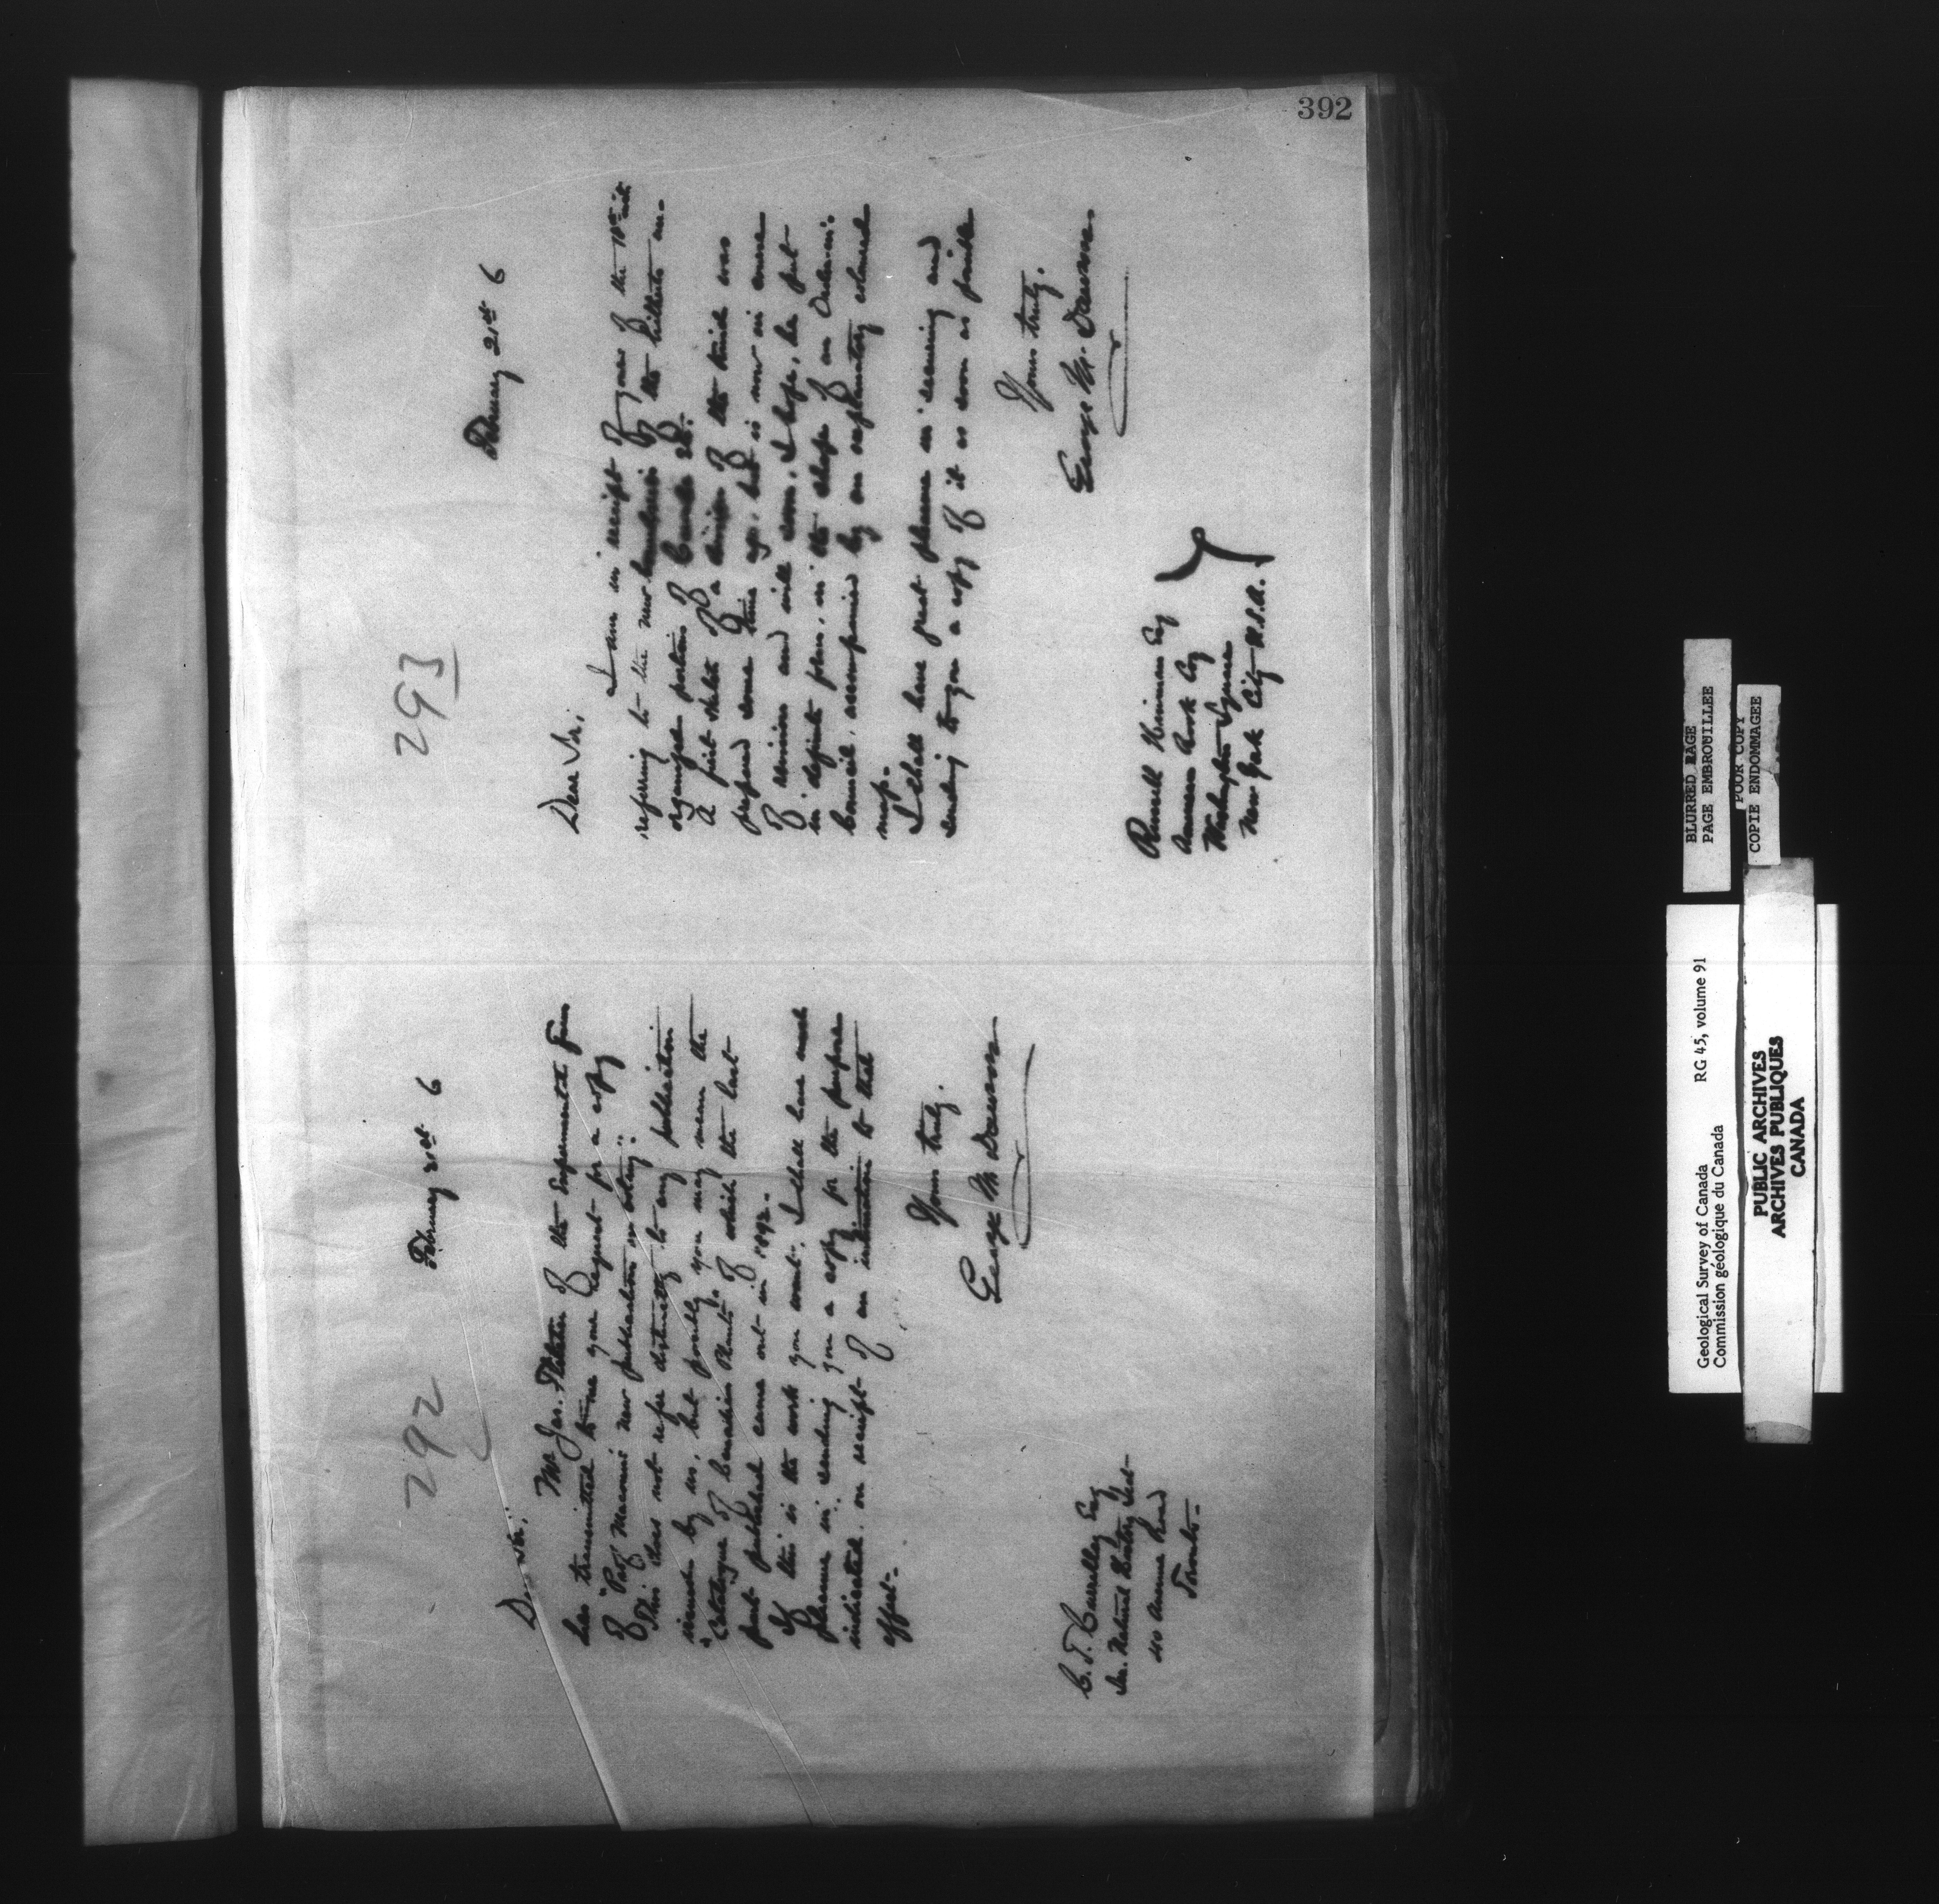 392
292
February 21st 6
Dear Sir;
Mr Jas. Fletcher of the Experimental Farm
has transmitted to me your request for a copy
of "Prof Macoun's new publication on botany".
This does not refer distinctly to any publication
issued by us, but possibly you may mean the
"Catalogue of Canadian Plants" of which the last
part published came out in 1892.
If this is the work you want, I shall have much
pleasure in sending you a copy for the purpose
indicated, on receipt of an intimation to that
effect.
Yours truly.
George M Dawson
C. T. Currelly Esq
Natural History
40 Avenue Road
Toronto
293
February 21st 6
Dear Sir;
I am in receipt of yours of the 18th inst
referring to the new boundaries of the hitherto un-
organized portions of Canada &c.
A first sketch of a division of the kind was
prepared some time ago, but is now in course
of revision and will soon, I hope, be put
in definite form, in the shape of an Order-in-
Council, accompanied by an explanatory coloured
map.
I shall have great pleasure in securing and
sending to you a copy of it as soon as possible
Yours truly.
George M. Dawson
Russell Hinman Esq
American Book Coy
Washington Square
New York City U.S.A.
BLURRED PAGE
PAGE EMBROUILLEE
POOR COPY
COPIE ENDOMMAGEE
Geological Survey of Canada RG 45, volume 91
Commission géologique du Canada
PUBLIC ARCHIVES
ARCHIVES PUBLIQUES
CANADA